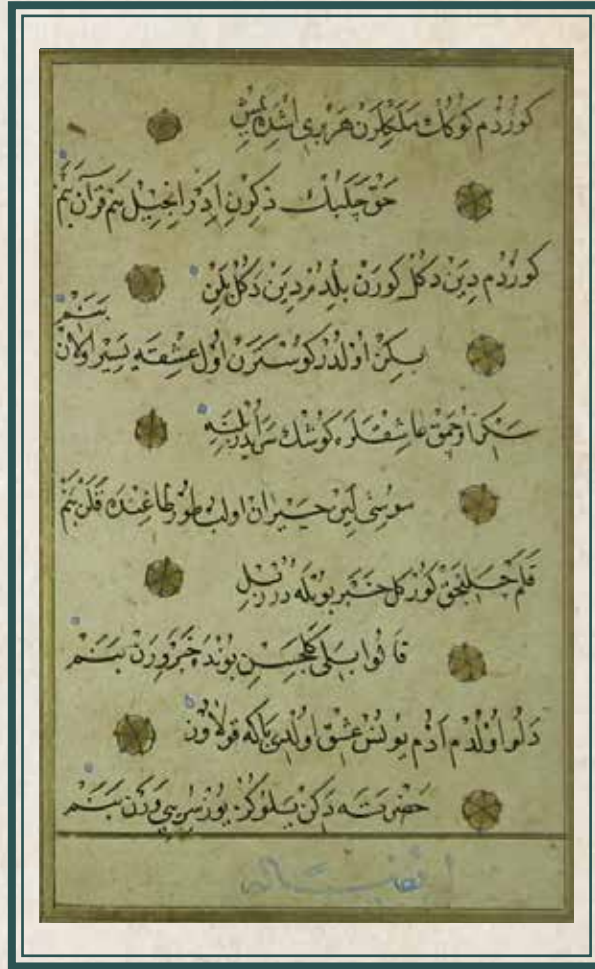 كوردم كوكك ملكلرن هر بري اشده يمش
حق چلبنك ذكرن ادر انجيل بنم قرآن بنم
كوردم دين دكل كورن بلدم دين دكل بلن
بنم
بلن اولدر كوسترن اول عشقه يسير اولان
سكز اوچمق عاشقلره كوشك سرايدر بله
موسى لين حيران اولب طور طاغنده قلن بنم
قلم چلنجق كوز كل خبر بويله درر بل
قالوا بلى كلجسن بونده خبر ورن بنم
دلو اولدم ادم يونس عشق اولدى باكه قولاوز
حضرته دكن يلوكز يوز سري ورن بنم